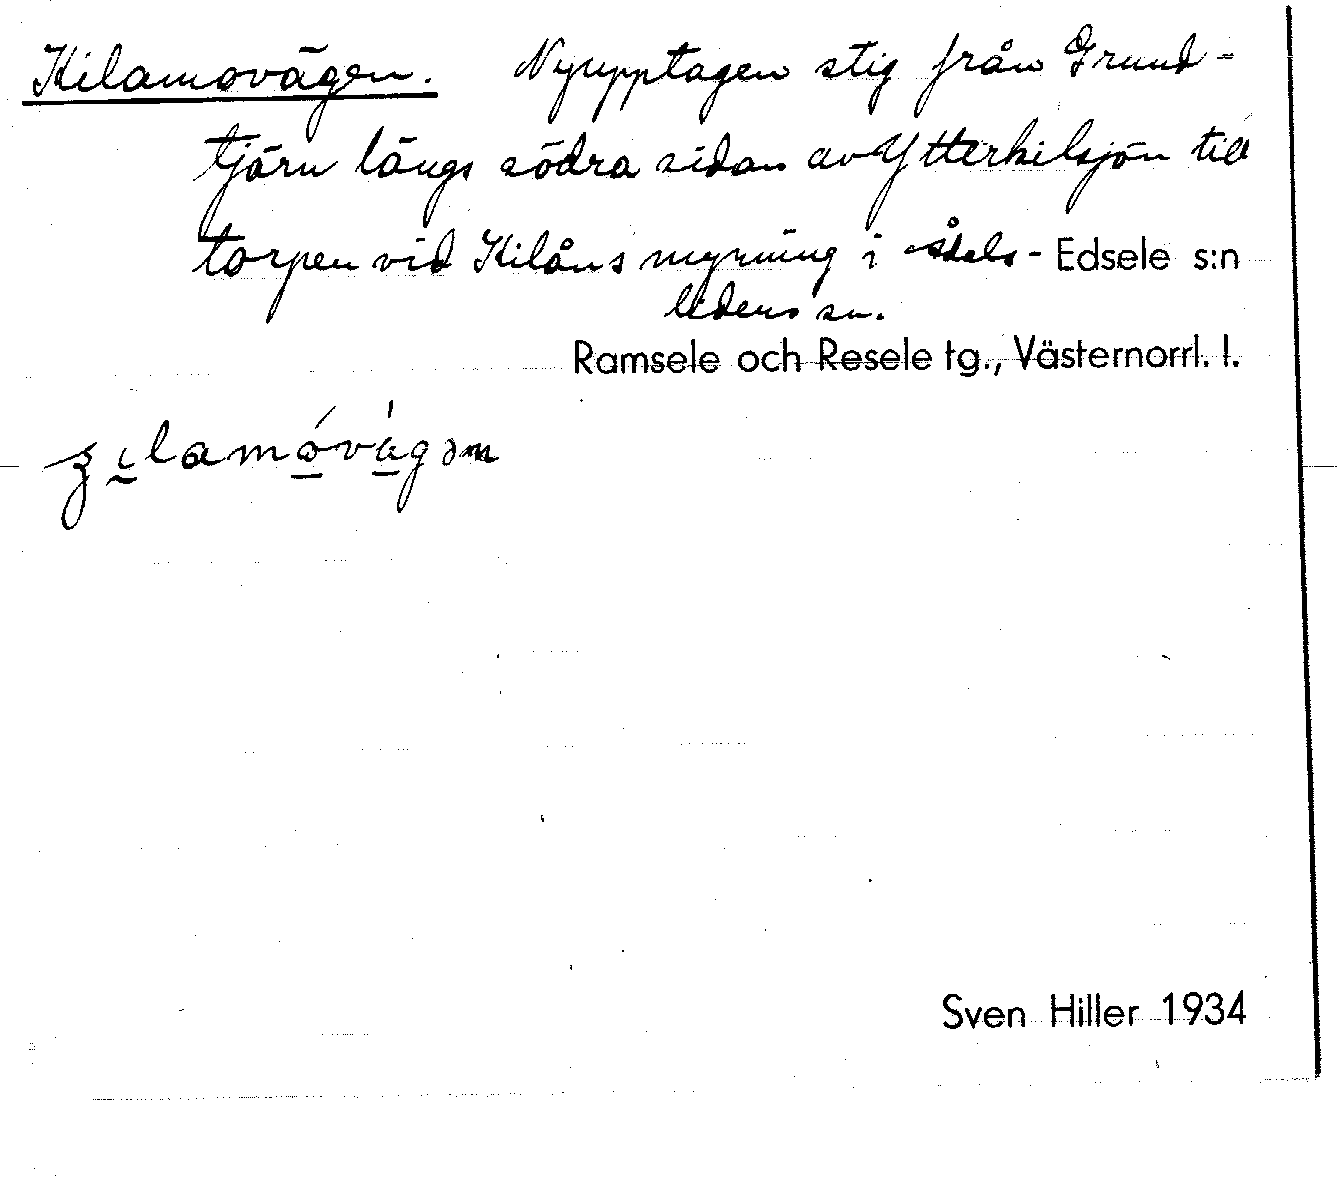 Kilamovägen. Nyupptagen stig från Grund-
tjärn längs södra sidan av Ytterkilsjön till
torpen vid Kilåns myrning i Ådals-
lidens sn.
Edsele s:n
Ramsele och Resele tg., Västernorrl. l.
Sven Hiller 1934